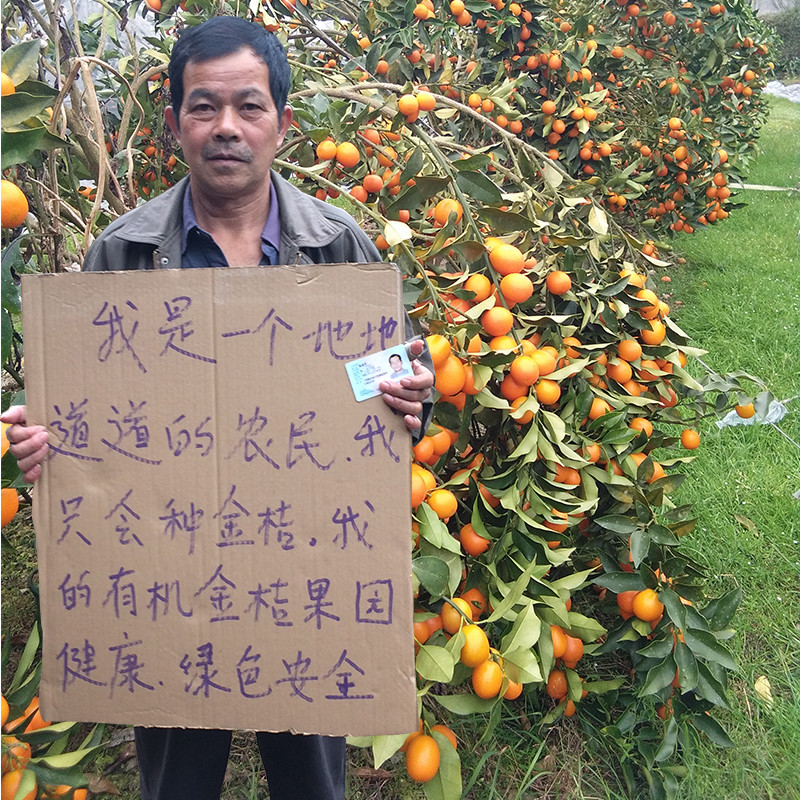 我是一个地地
道道的农民.我
只会种金桔.我
的有机金桔果园
健康.绿色安全